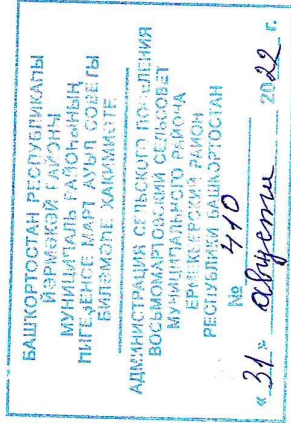 БАШКОРТОСТАН РЕСПУБЛИКАҺЫ
ЙӘРМӘКӘЙ РАЙОНЫ
МУНИЦИПАЛЬ РАЙОНЫНЫҢ
МАРТ АУЫЛ СОВЕТЫ
БИЛӘМӘҺЕ ХАКИМИӘТЕ
АДМИНИСТРАЦИЯ СЕЛЬСКОГО ПОСЕЛЕНИЯ
ВОСЬМОМАРТОВСКИЙ СЕЛЬСОВЕТ
МУНИЦИПАЛЬНОГО РАЙОНА
ЕРМЕКЕЕВСКИЙ РАЙОН
РЕСПУБЛИКИ БАШКОРТОСТАН
№ 410
« 31 » августа 2022 г.